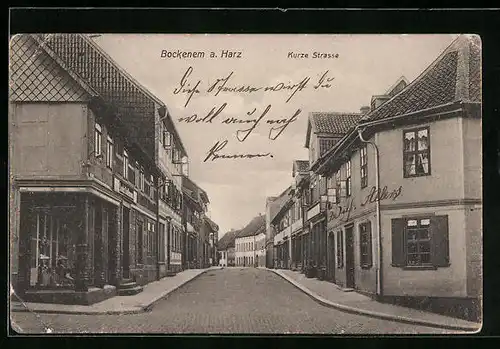 Bockenem a. Harz
Kurze Strasse
Diese Strasse wirst Du
wohl auch noch
kennen.